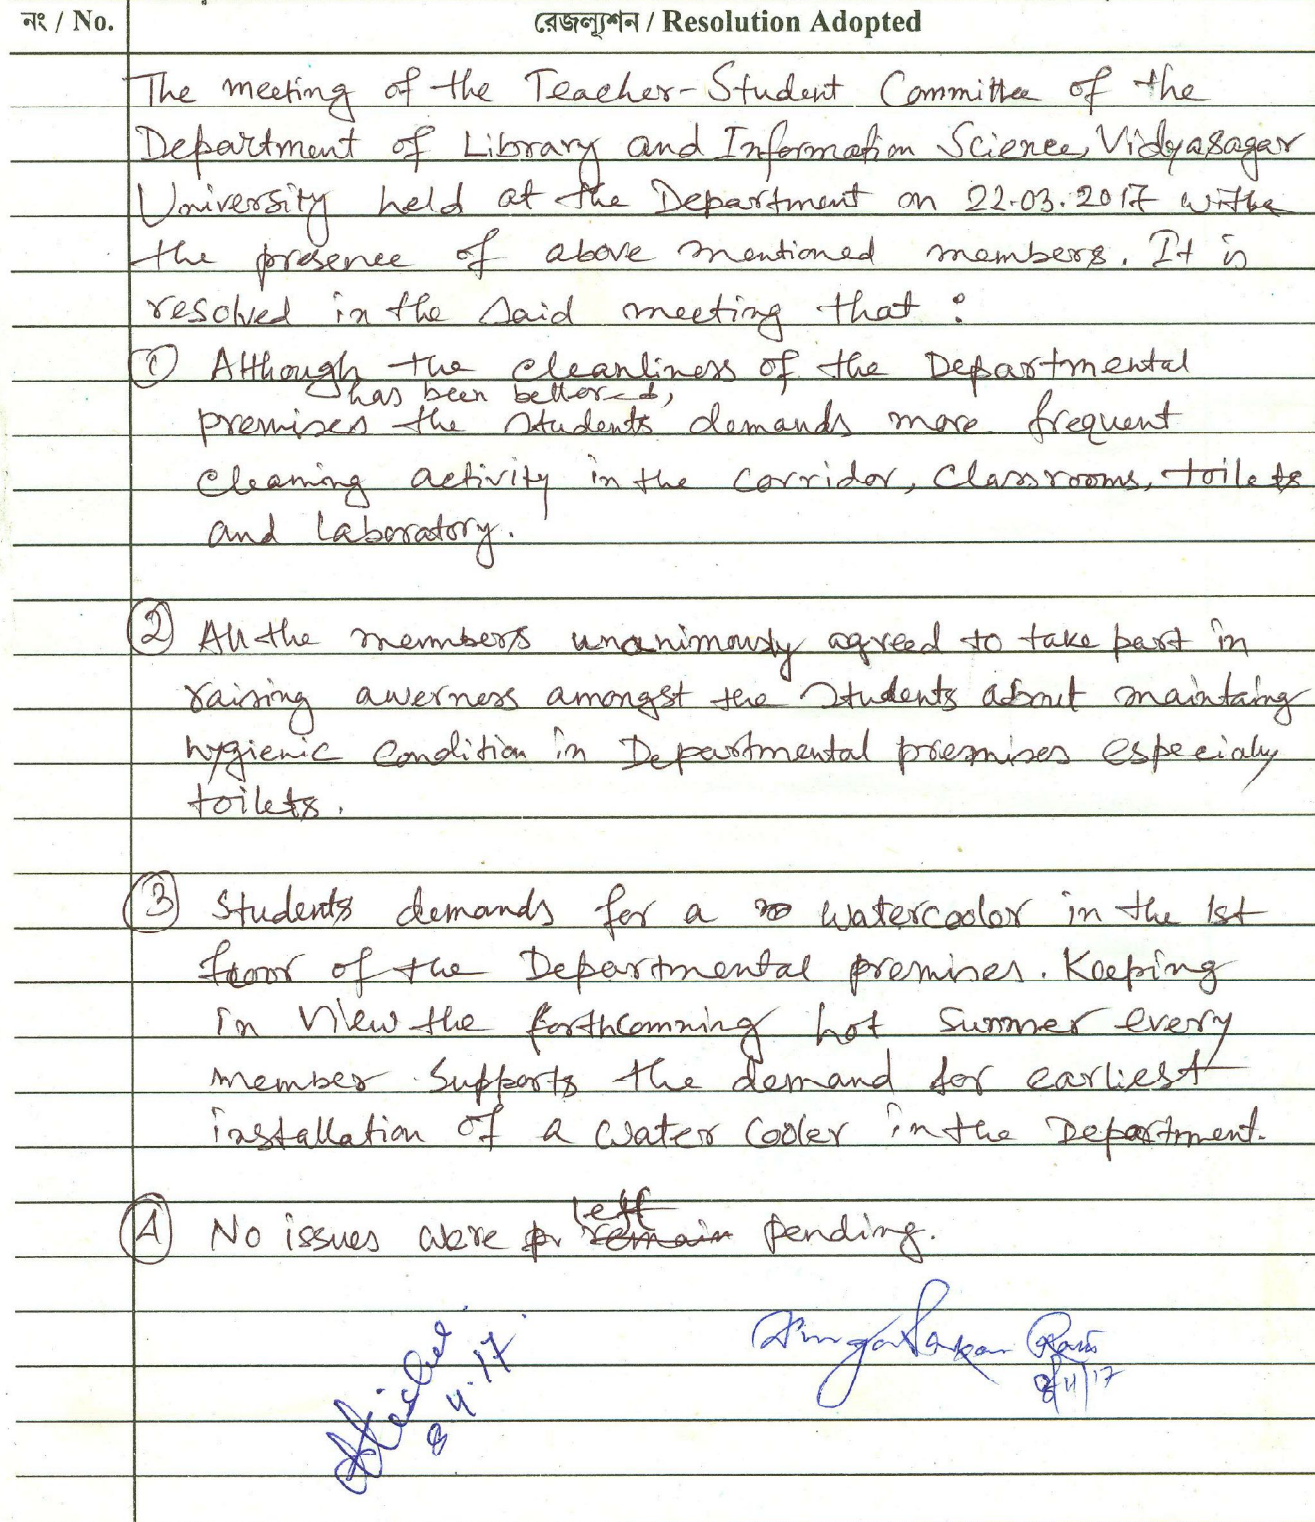 নং / No. রেজল্যুশন / Resolution Adopted
The meeting of the Teacher-Student Committee of the
Department of Library and Information Science, Vidyasagar
University held at the Department on 22.03.2017 withe
the presence of above mentioned members. It is
resolved in the said meeting that :
① Although the cleanliness of the Departmental
has been bettered,
premises the students demands more frequent
cleaning activity in the corridor, classrooms, toilets
and laboratory.
② All the members unanimously agreed to take part in
raising awerness amongst the students about maintaing
hygienic condition in Departmental premises especialy
toilets.
③ Students demands for a watercooler in the 1st
floor of the Departmental premises. Keeping
in view the forthcomning hot summer every
member supports the demand for earliest
installation of a water cooler in the Department.
④ No issues were left pending.
8.4.17
8/4/17